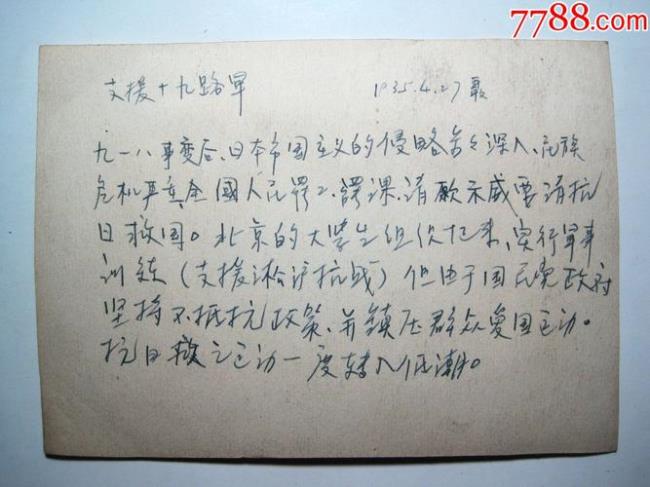 7788.com
支援十九路军 1935.4.27
九一八事变后、日本帝国主义的侵略步々深入、民族
危机严重全國人民罢工、罢课、请愿示威要请抗
日救国。北京的大学生组织起来,实行军事
训练(支援淞沪抗战)但由于国民党政府
坚持不抵抗政策、并镇压群众爱国运动。
抗日救亡运动一度转入低潮。